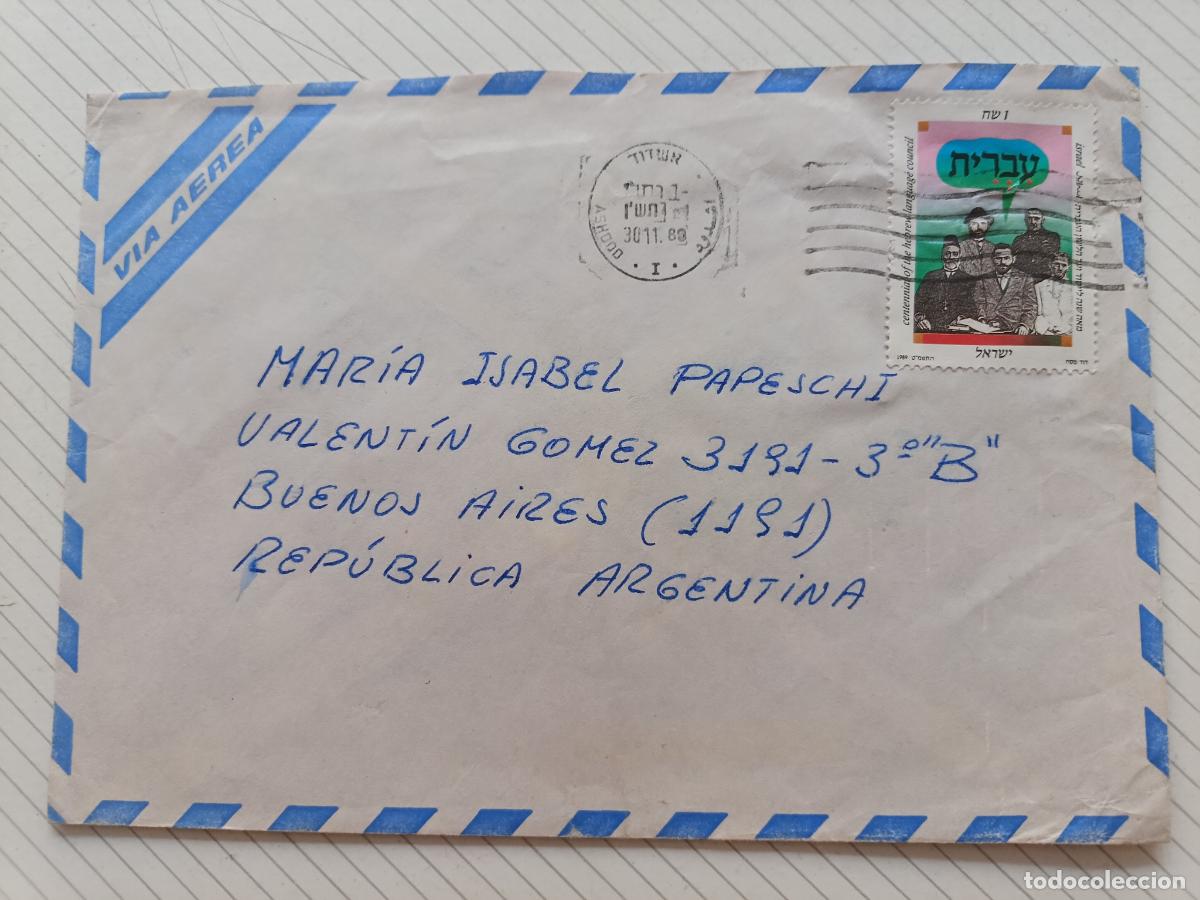 VIA AEREA
אשדוד
תש"ן
30.11.89
ASHDOD
I
1 שח
עברית
centennial of the hebrew language council
israel
ישראל
1989 התשמ"ט
MARÍA ISABEL PAPESCHI
VALENTÍN GOMEZ 3191-3º"B"
BUENOS AIRES (1191)
REPÚBLICA ARGENTINA
todocoleccion